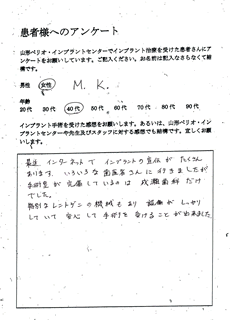 患者様へのアンケート
山形ペリオ・インプラントセンターでインプラント治療を受けた患者さんにア
ンケートをお願いしています。ご記入ください。お名前は記入なさらなくて結
構です。
男性 女性 M. K.
年齢
20代 30代 40代 50代 60代 70代 80代 90代
インプラント手術を受けた感想をお願いします。あるいは、山形ペリオ・イン
プラントセンターや先生及びスタッフに対する感想でも結構です。宜しくお願
いします。
最近 インターネットで インプラントの宣伝が たくさん
あります。いろいろな 歯医者さんに 行きましたが
手術室が 完備しているのは 成瀬歯科だけ
でした。
特別なレントゲンの機械もあり 設備が しっかり
していて 安心して 手術を 受けることが出来ました